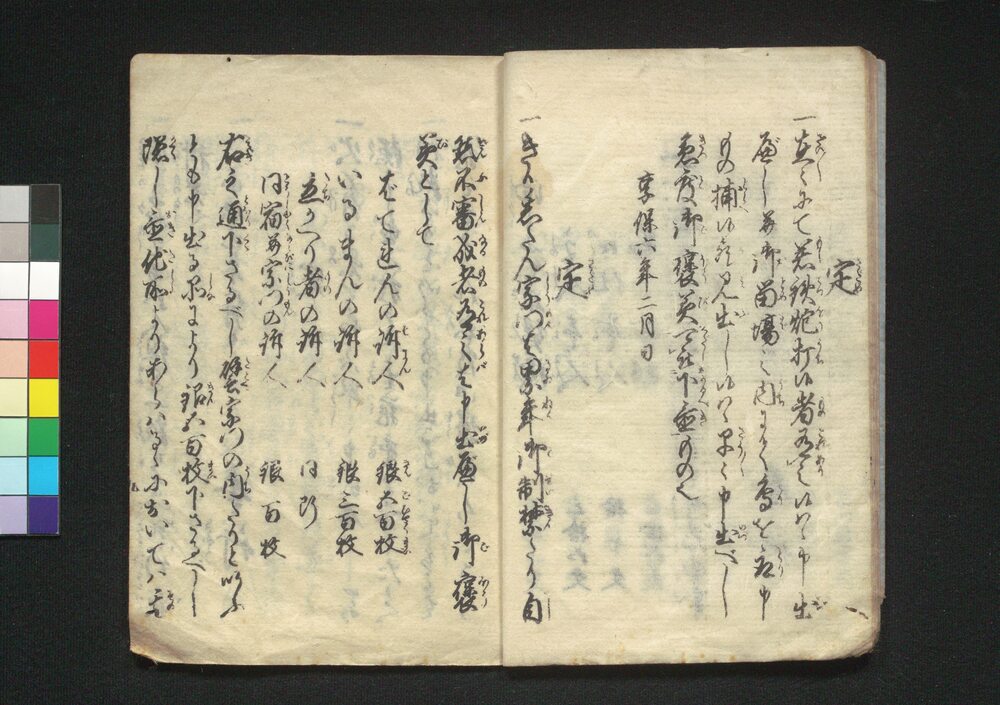 定
一在々にて若鉄炮打候者有之候はゝ申出
へし并御留場之内にて鳥を取申
もの捕候歟見出し候はゝ早々申出へし
急度御褒美可被下置もの也
享保六年二月日
定
一きりしたん宗門は累年御制禁たり自
然不審成者有之は申出へし御褒
美として
はてれんの訴人 銀五百枚
いるまんの訴人 銀三百枚
立かへり者の訴人 同断
同宿并宗門の訴人 銀百枚
右之通下さるへし譬宗門の内たりといふ
とも申出る品により銀五百枚下さるへし
隠し置他所よりあらはるゝにおいては其